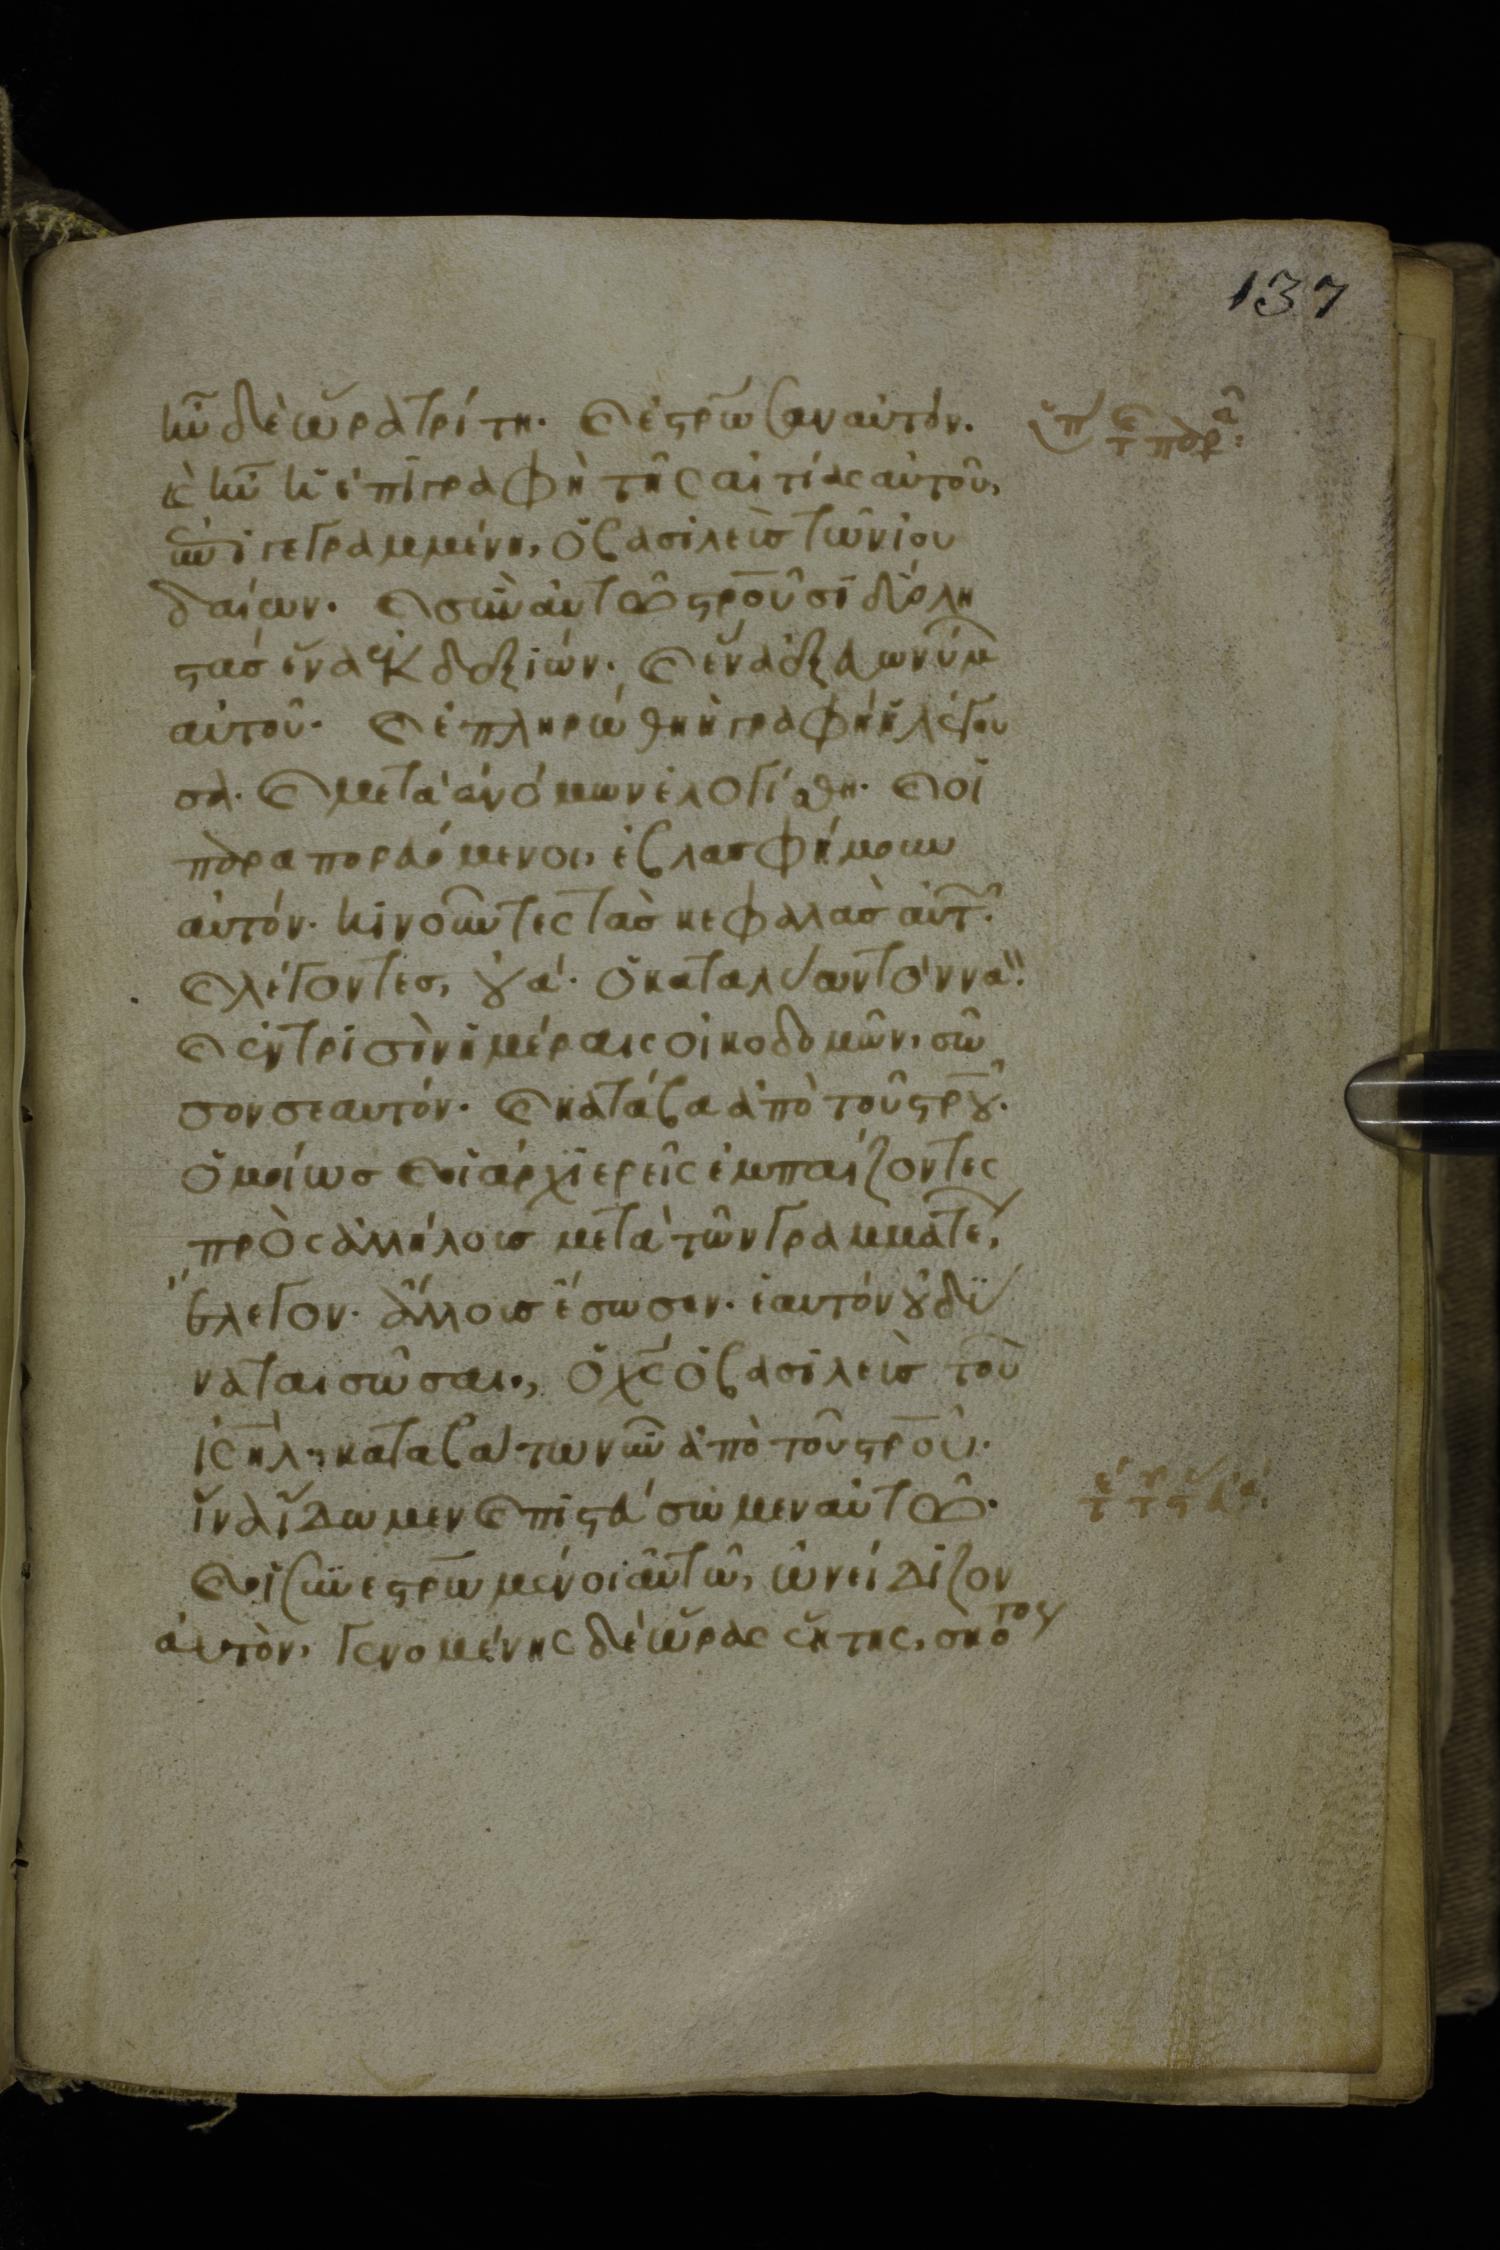 137
ἦν δὲ ὥρα τρίτη. καὶ ἐστρω̅σαν αὐτόν.
κ̀ ἦν ἡ ἐπιγραφὴ τῆς αἰτίας αὐτοῦ,
ἐπιγεγραμμένη, ὁ βασιλεὺς τῶν ἰου
δαίων. καὶ σὺν αὐτῶ στρ̅οῦσι δύο λη
στάσ ἕνα ἐκ δεξιῶν. καὶ ἕνα ἐξ εὐωνύμ
αὐτοῦ. καὶ ἐπληρώθη ἡ γραφὴ ἡ λέγου
σα. καὶ μετὰ ἀνόμων ἐλογίσθη. καὶ οἱ
παραπορευόμενοι, ἐβλασφήμουν
αὐτόν. κινοῦντες τὰσ κεφαλὰσ αὐτ.
καὶ λέγοντεσ, οὐά. ὁ καταλύων τὸν να.
καὶ ἐν τρισὶν ἡμέραις οἰκοδομῶν, σῶ
σον σεαυτόν. καὶ κατάβα ἀπὸ τοῦ στρ̅ου.
ὁμοίωσ καὶ οἱ ἀρχιερεῖς ἐμπαίζοντες
πρὸς ἀλλήλουσ μετὰ τῶν γραμματέ,
ἔλεγον. ἄλλουσ ἔσωσεν. ἑαυτὸν οὐ δύ
ναται σῶσαι., ὁ χ̅ς ὁ βασιλεὺσ τοῦ
ι̅ηλ, καταβάτω νῦν ἀπὸ τοῦ στρ̅οῦ.
ἵνα ἴδωμεν καὶ πιστεύσωμεν αὐτῶ.
καὶ οἱ συνεστρω̅μένοι αὐτῶ, ὠνείδιζον
αὐτὸν, γενομένης δὲ ὥρας ἕκτης, σκότος